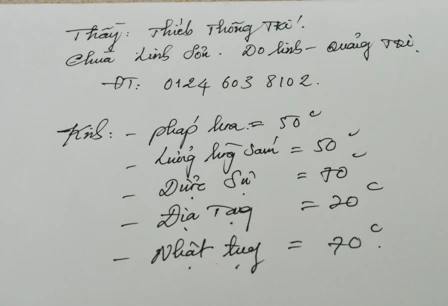 Thầy: Thích Thông Trí.
Chùa Linh Sơn. Do linh - Quảng Trị.
ĐT: 0124 603 8102.
Kinh: - pháp hoa = 50 c
- Lương hoàng Sám = 50 c
- Dược Sư = 70 c
- Địa Tạng = 20 c
- Nhật tụng = 70 c.